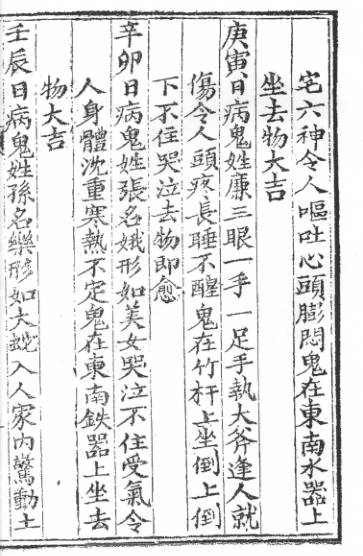 宅六神令人嘔吐心頭膨悶鬼在東南水器上
坐去物大吉
庚寅日病鬼姓廉三眼一手一足手執大斧逢人就
傷令人頭疼長睡不醒鬼在竹杆上坐倒上倒
下不住哭泣去物即愈
辛卯日病鬼姓張名娥形如美女哭泣不住受氣令
人身體沈重寒熱不定鬼在東南鉄器上坐去
物大吉
壬辰日病鬼姓孫名樂形如大蛇入人家內驚動土